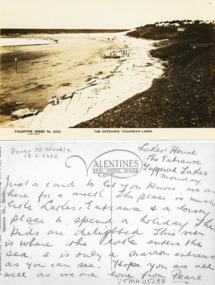 VALENTINE SERIES No.
THE ENTRANCE, TUGGERAH LAKES
Lakes' House
The Entrance
Tuggerah Lakes
Monday
VALENTINES
REAL PHOTO SERIES
Just a card to let You know we are
here for a The place is much
Lakes Entrance is a lovely
place to spend a holiday. The
kids are delighted This view
is where the lake enters the
sea & is only a narrow entrance
as you can see. Hope you are all
well as we are. Love from Pearl